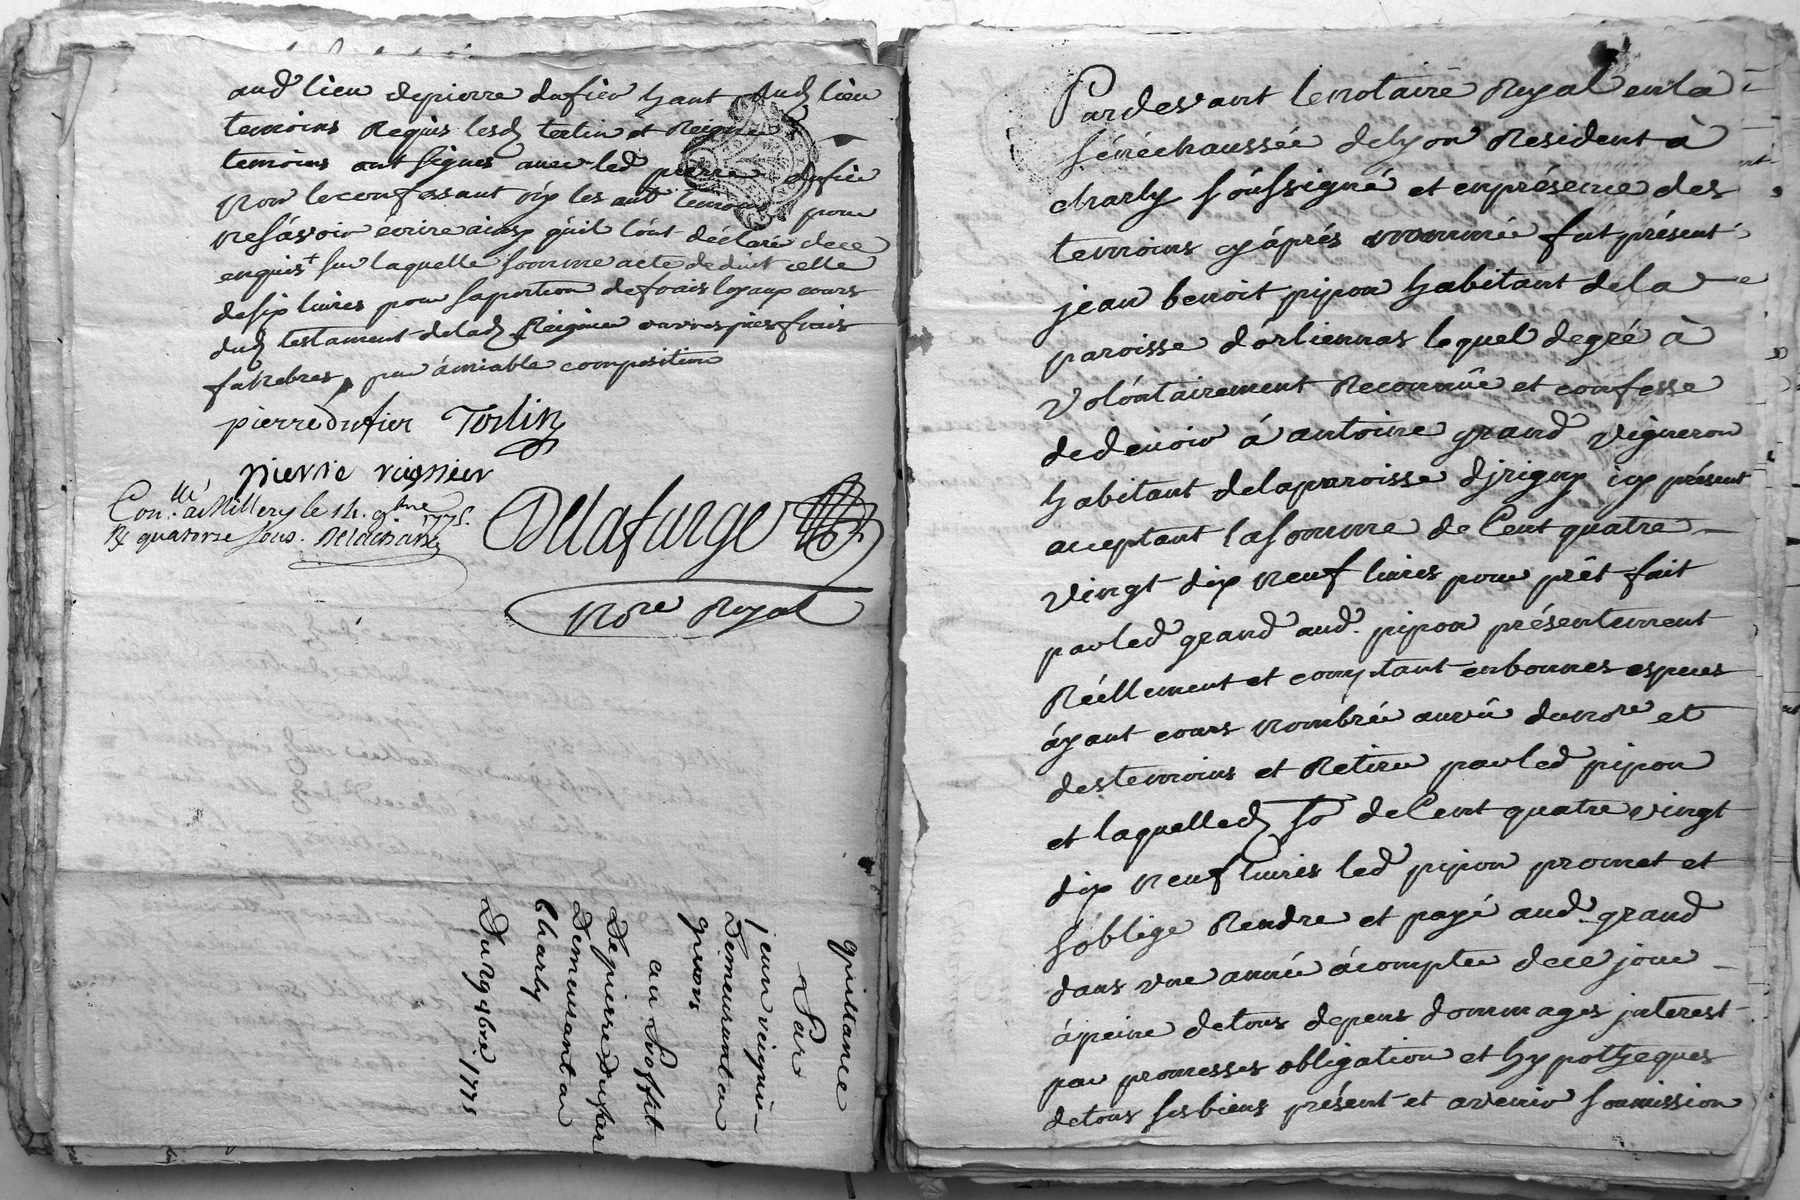 aud lieu de pierre dufieu habt aud lieu
temoins Requis lesd tortin et Reignier
temoins ont signés avec led pierre dufieu
non le confessant les autt temoins pour
ne sávoir écrire ainsy qúil lónt déclaré de ce
enquis sur laquelle somme a été deduit celle
de six livres pour sa portion de frais loyaux cours
dud testament de lad Reignier
funebres par ámiable composition
pierre dufieu Tortin
pierre rignier
Con.llé a Millery le 14. 9bre 1775.
R quatorze sous.
Dellafarge
Nore Royal
quittance
Par
jean reignier
Demeurant au
Au Proffit
De pierre Dufieu
Demeurant a
Charly
Du 9bre 1775
Pardevant le notaire Royal en la
sénéchaussée de lyon Resident à
charly soússigné et en présence des
temoins cy áprés nommé fut présent
jean benoit pipon habitant de la
paroisse d'órliennas lequel de gré à
volóntairement Reconnúe et confesse
de devoir á antoine grand vigneron
habitant de la paroisse djrigny icy présent
acceptant la somme de Cent quatre
vingt dix neuf livres pour prêt fait
par led grand aud. pipon présentement
Réellement et comptant en bonnes espèces
áyant cours nombrée au vû du nore et
des temoins et Retiré par led pipon
et laquelled so de Cent quatre vingt
dix neuf livres led pipon promet et
s'oblige Rendre et payé aud. grand
dans une année ácompter de ce jour
ápeine de tous depens dommages jnterest
par promesses obligation et hypotheques
de tous ses biens présent et avenir soumission